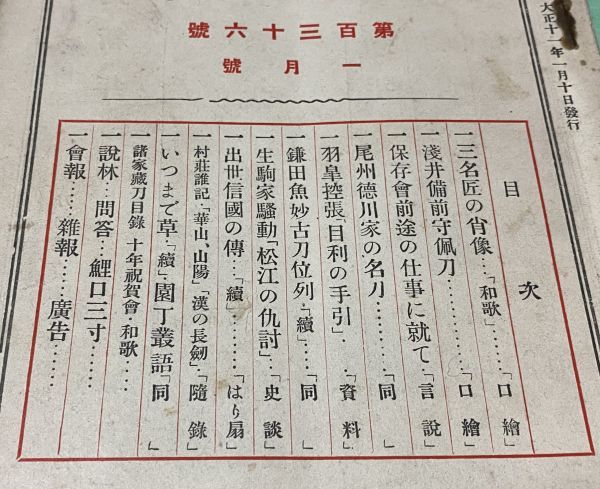 大正十一年一月十日發行
第百三十六號
一月號
目次
一三名匠の肖像…「和歌」……「口繪」
一淺井備前守佩刀…………「口繪」
一保存會前途の仕事に就て「言說」
一尾州德川家の名刀………「同」
一羽皐控張「目利の手引」…「資料」
一鎌田魚妙古刀位列・「續」…「同」
一生駒家騷動「松江の仇討」…「史談」
一出世信國の傳…「續」………「はり扇」
一村莊誰記「華山、山陽」「漢の長劒」「隨錄」
一いつまで草・「續」園丁叢語「同」
一諸家藏刀目錄 十年祝賀會・和歌…
一說林…問答……鯉口三寸……
一會報……雜報……廣告……